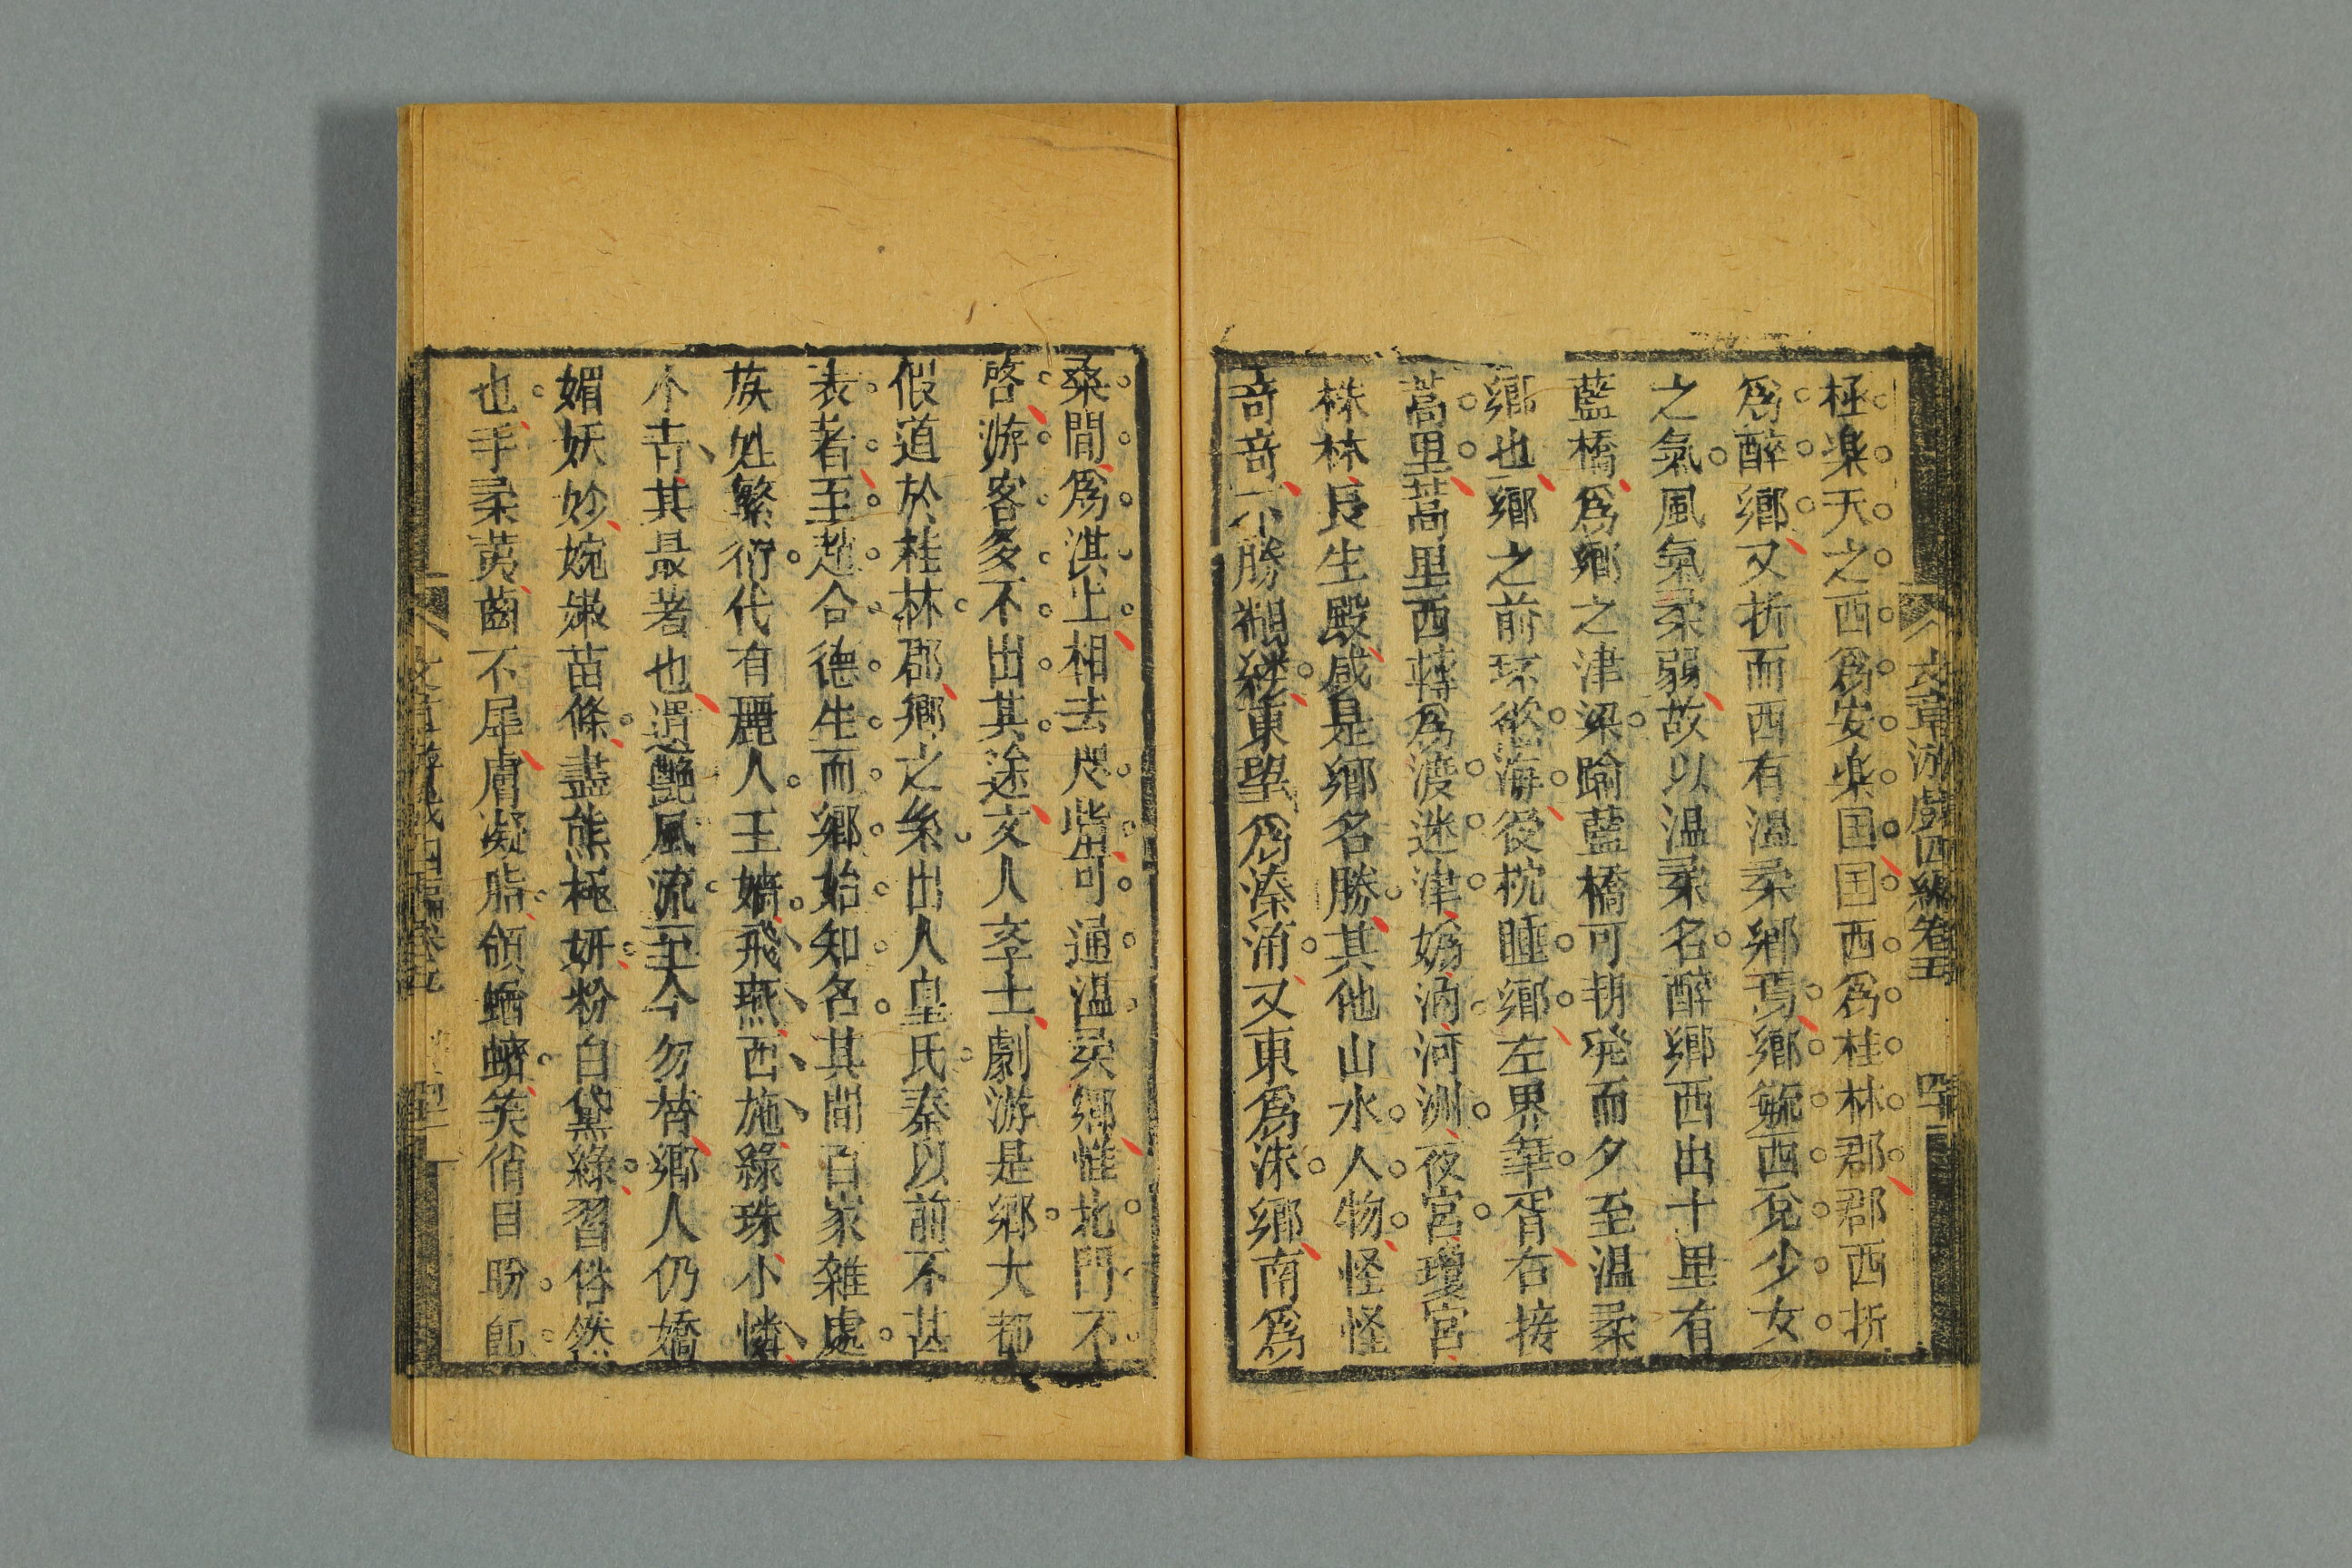 文章游戲四編卷五 四十
極楽天之西爲安楽国国西爲桂林郡郡西折
爲醉鄉又折而西有温柔鄉焉鄉毓西兌少女
之氣風氣柔弱故以温柔名醉鄉西出十里有
藍橋爲鄉之津梁踰藍橋可朝発而夕至温柔
鄉也鄉之前环欲海後枕睡鄉左界華胥右接
蒿里蒿里西轉爲渡迷津妫汭河洲夜宮瓊宮
株林長生殿咸是鄉名勝其他山水人物怪怪
竒竒不勝覶縷東望爲溱洧又東爲沬鄉南爲
桑間爲淇上相去咫尺皆可通温柔鄉惟北門不
啓游客多不出其途文人孝士劇游是鄉大都
假道於桂林郡鄉之系出人皇氏秦以前不甚
表著至趙合德生而鄉始知名其間百家雜處
族姓繁衍代有麗人王嬙飛燕西施綠珠小憐
小青其最著也遺艷風流至今勿替鄉人仍嬌
媚妖妙婉嫩苗條盡態極妍粉白黛綠習俗然
也手柔荑齒不犀膚凝脂領蝤蠐笑俏目盼即